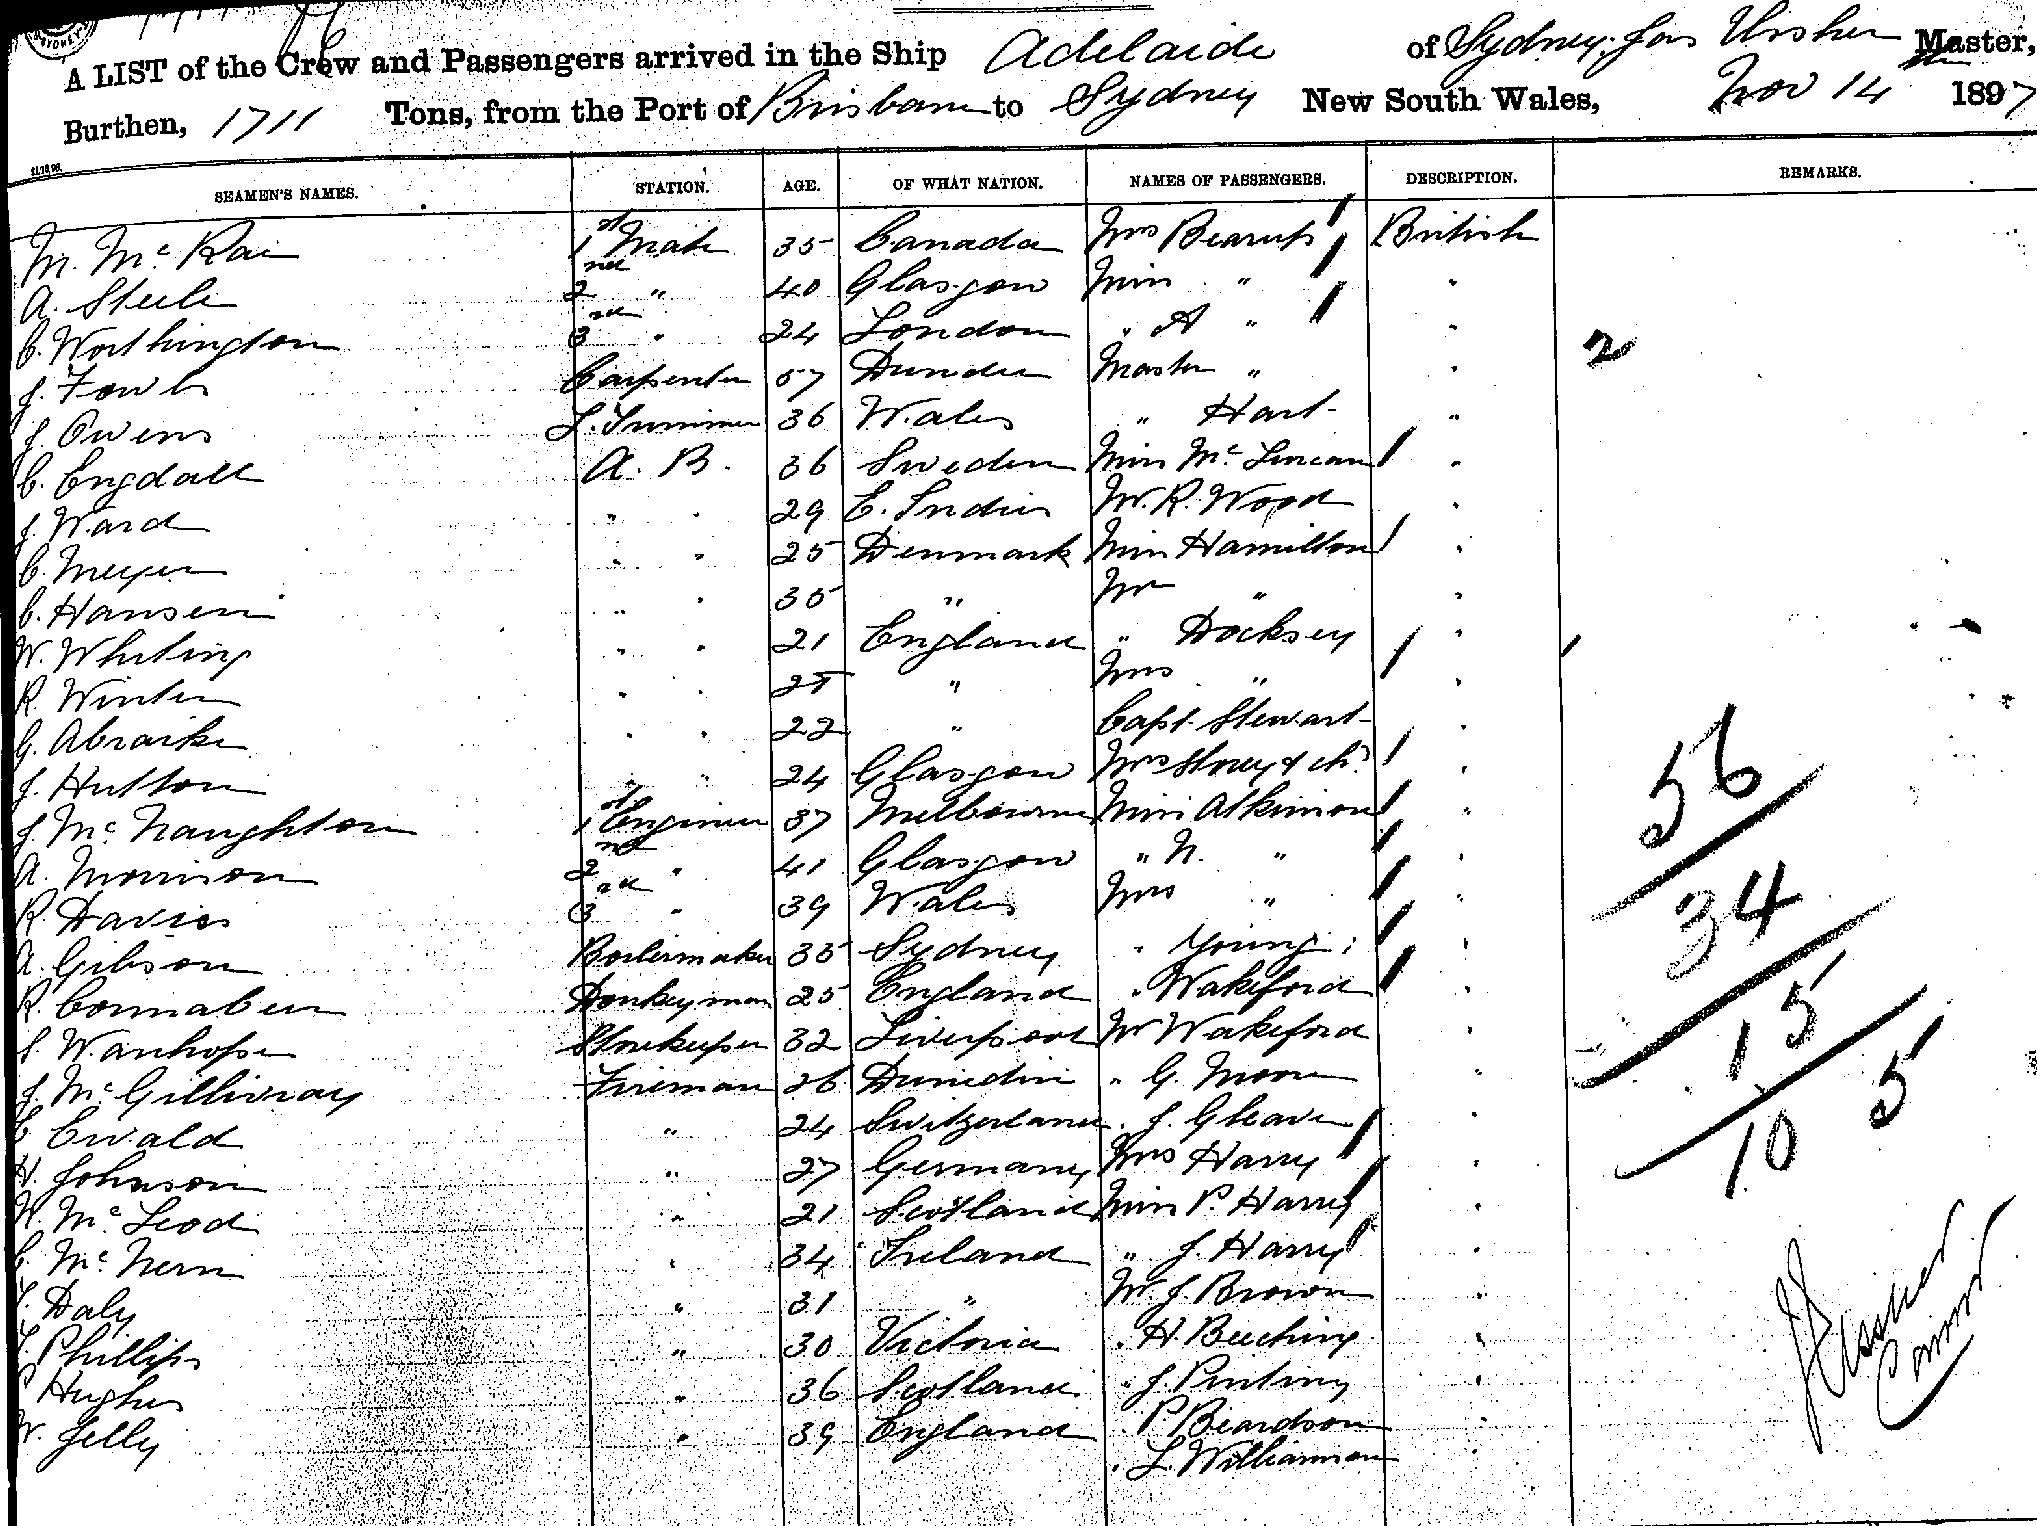 SYDNEY
A LIST of the Crew and Passengers arrived in the Ship Adelaide of Sydney, Jas Ussher Master,
Burthen, 1711 Tons, from the Port of Brisbane to Sydney New South Wales, Nov 14 1897
SEAMEN'S NAMES. STATION. AGE. OF WHAT NATION. NAMES OF PASSENGERS. DESCRIPTION. REMARKS.
M. Mc Rae 1st Mate 35 Canada Mrs Bearup British
A. Steele 2nd " 40 Glasgow Miss " "
C. Worthington 3rd " 24 London " A " " 2
J. Fowler Carpenter 57 Dundee Master " "
J. Owens L. Trimmer 36 Wales " Hart "
C. Engdall A. B. 36 Sweden Miss Mc "
J. Ward " " 29 E. Indies Mr. R. Wood "
C. Meyer " " 25 Denmark Miss Hamilton "
C. Hansen " " 35 " Mr " "
W. Whiting " " 21 England " Docksey "
R. Winter " " 25 " Mrs " "
G. " " 22 " Capt. Stewart "
J. Hutton " " 24 Glasgow Mrs Storey & ch. " 56
J. Mc Naughton 1st Engineer 37 Melbourne Miss Atkinson "
A. Morrison 2nd " 41 Glasgow " N. " "
R. Davies 3rd " 39 Wales Mrs " " 34
A. Gibson Boilermaker 35 Sydney " Young "
R. Connaben Donkeyman 25 England " Wakeford "
S. Wauhope Storekeeper 32 Liverpool Mr Wakeford " 15
J. Mc Gillivray Fireman 26 Dunedin " G. Moore " 5
E Ewald " 24 Switzerland " J. Gleave "
H. Johnson " 27 Germany Mrs Harry " 10
N. Mc Leod " 21 Scotland Miss P. Harry "
C. Mc Nern " 34 Ireland " J. Harry "
T. Daly " 31 " Mr. J. Brown " J Ussher
T. Phillips " 30 Victoria " H. Beeching "
P Hughes " 36 Scotland " J. Punting "
W. Jelly " 39 England " P Beardson "
" L. Williamson